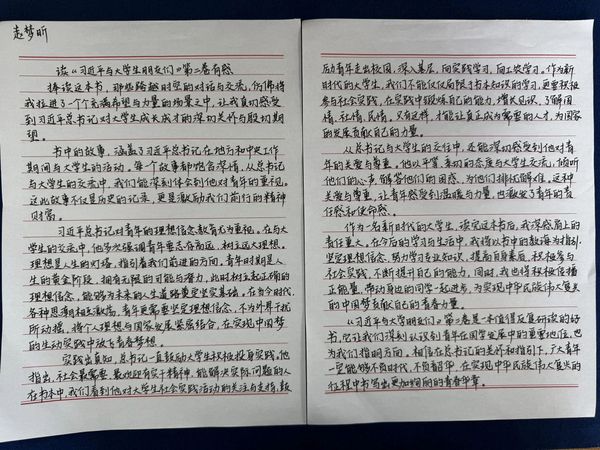 赵梦昕
读《习近平与大学生朋友们》第二卷有感
捧读这本书，那些跨越时空的对话与交流，仿佛将
我拉进了一个个充满希望与力量的场景之中，让我真切感受
到习近平总书记对大学生成长成才的深切关怀与殷切期
望。
书中的故事，涵盖习近平总书记在地方和中央工作
期间与大学生的活动，每个故事都饱含深情，从总书记
与大学生的交流中，我们能深刻体会到他对青年的重视。
这些故事不仅是历史的记录，更是激励我们前行的精神
财富。
习近平总书记对青年的理想信念教育尤为重视。在与大
学生的交流中，他多次强调青年要志存高远，树立远大理想。
理想是人生的灯塔，指引着我们前进的方向，青年时期是人
生的黄金阶段，拥有无限的可能与潜力，此时树立起正确的
理想信念，能够为未来的人生道路奠定坚实基础，在当今时代，
各种思潮相互激荡，青年更需要坚定理想信念，不为外界干扰
所动摇，将个人理想与国家发展紧密结合，在实现中国梦
的生动实践中放飞青春梦想。
实践出真知，总书记一直鼓励大学生积极投身实践，他
指出，社会最需要、最欢迎有实干精神，能解决实际问题的人
在书本中，我们看到他对大学生社会实践活动的关注与支持，鼓
励青年走出校园，深入基层，向实践学习，向工农学习。作为新
时代的大学生，我们不能仅仅局限于书本知识的学习，更要积极
参与社会实践，在实践中锻炼自己的能力，增长见识，了解国
情、社情、民情，只有这样，才能让真正成为需要的人才，为国家
的发展贡献自己的力量。
从总书记与大学生的交往中，还能深切感受到他对青
年的关爱与尊重。他以平等、亲切的态度与大学生交流，倾听
他们的心声，解答他们的困惑，为他们排忧解难，这种
关爱与尊重，让青年感受到温暖与力量，也激发了青年的责
任感和使命感。
作为一名新时代的大学生，读完这本书后，我深感肩上的
责任重大，在今后的学习与生活中，我将以书中的教诲为指引，
坚定理想信念，努力学习专业知识，提高自身素质，积极参与
社会实践，不断提升自己的能力，同时，我也将积极传播
正能量，带动身边的同学一起进步，为实现中华民族伟大复兴
的中国梦贡献自己的青春力量。
《习近平与大学生朋友们》第二卷是一本值得反复研读的好
书，它让我们深刻认识到青年在国家发展中的重要地位，也
为我们指明方向，相信在总书记的关怀和指引下，广大青年
一定能够不负时代，不负韶华，在实现中华民族伟大复兴的
征程中书写出更加绚丽的青春华章。